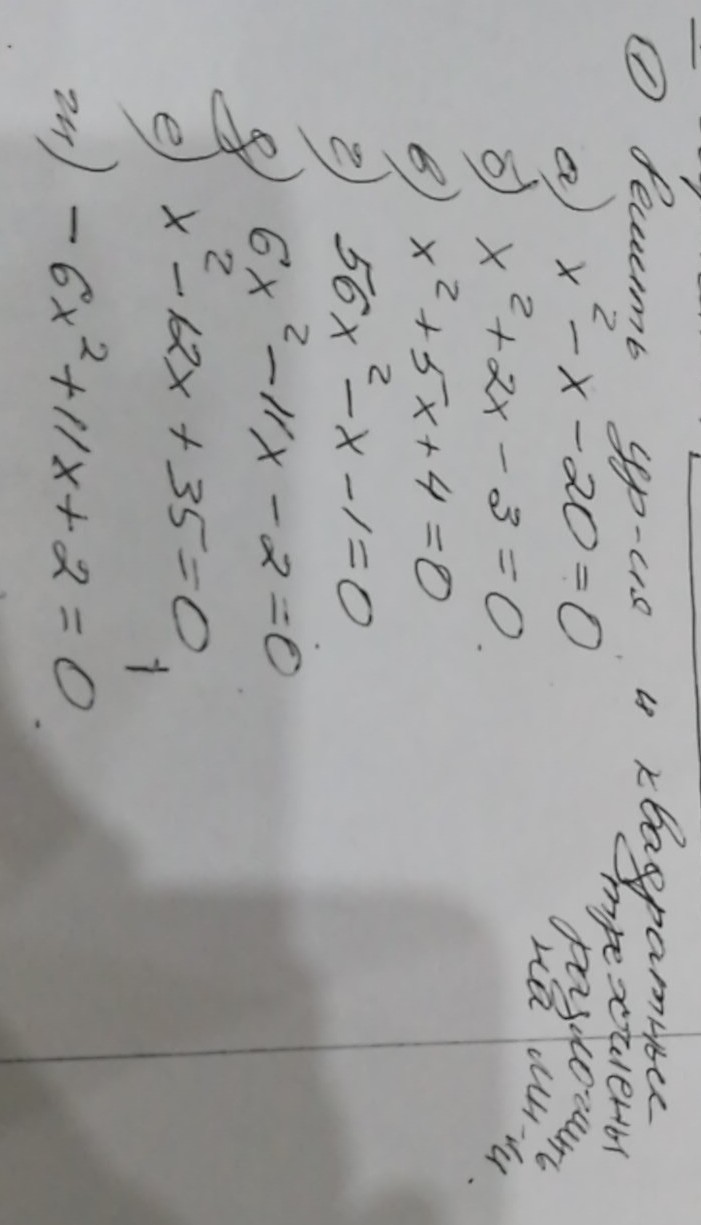 ① Решить ур-ия и квадратные
трехчлены
разложить
на мн-ли
а) x² - x - 20 = 0
б) x² + 2x - 3 = 0
в) x² + 5x + 4 = 0
г) 56x² - x - 1 = 0
д) 6x² - 11x - 2 = 0
е) x² - 12x + 35 = 0
ж) - 6x² + 11x + 2 = 0